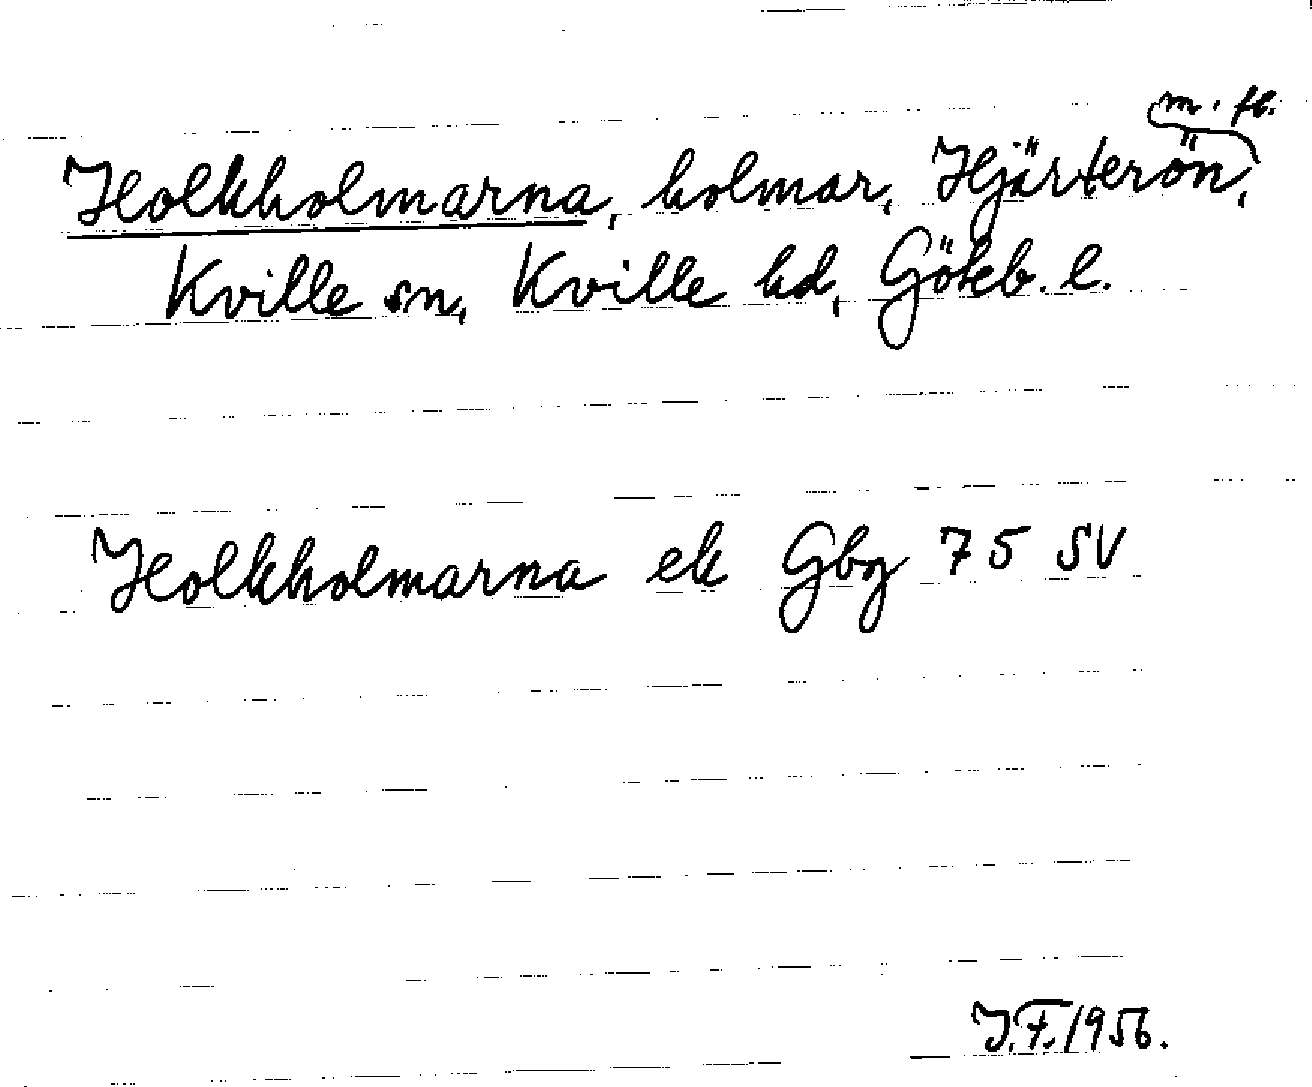 m. fl.
Holkholmarna, holmar, Hjärterön,
Kville sn, Kville hd, Göteb. l.
Holkholmarna ek Gbg 75 SV
J.F. 1956.